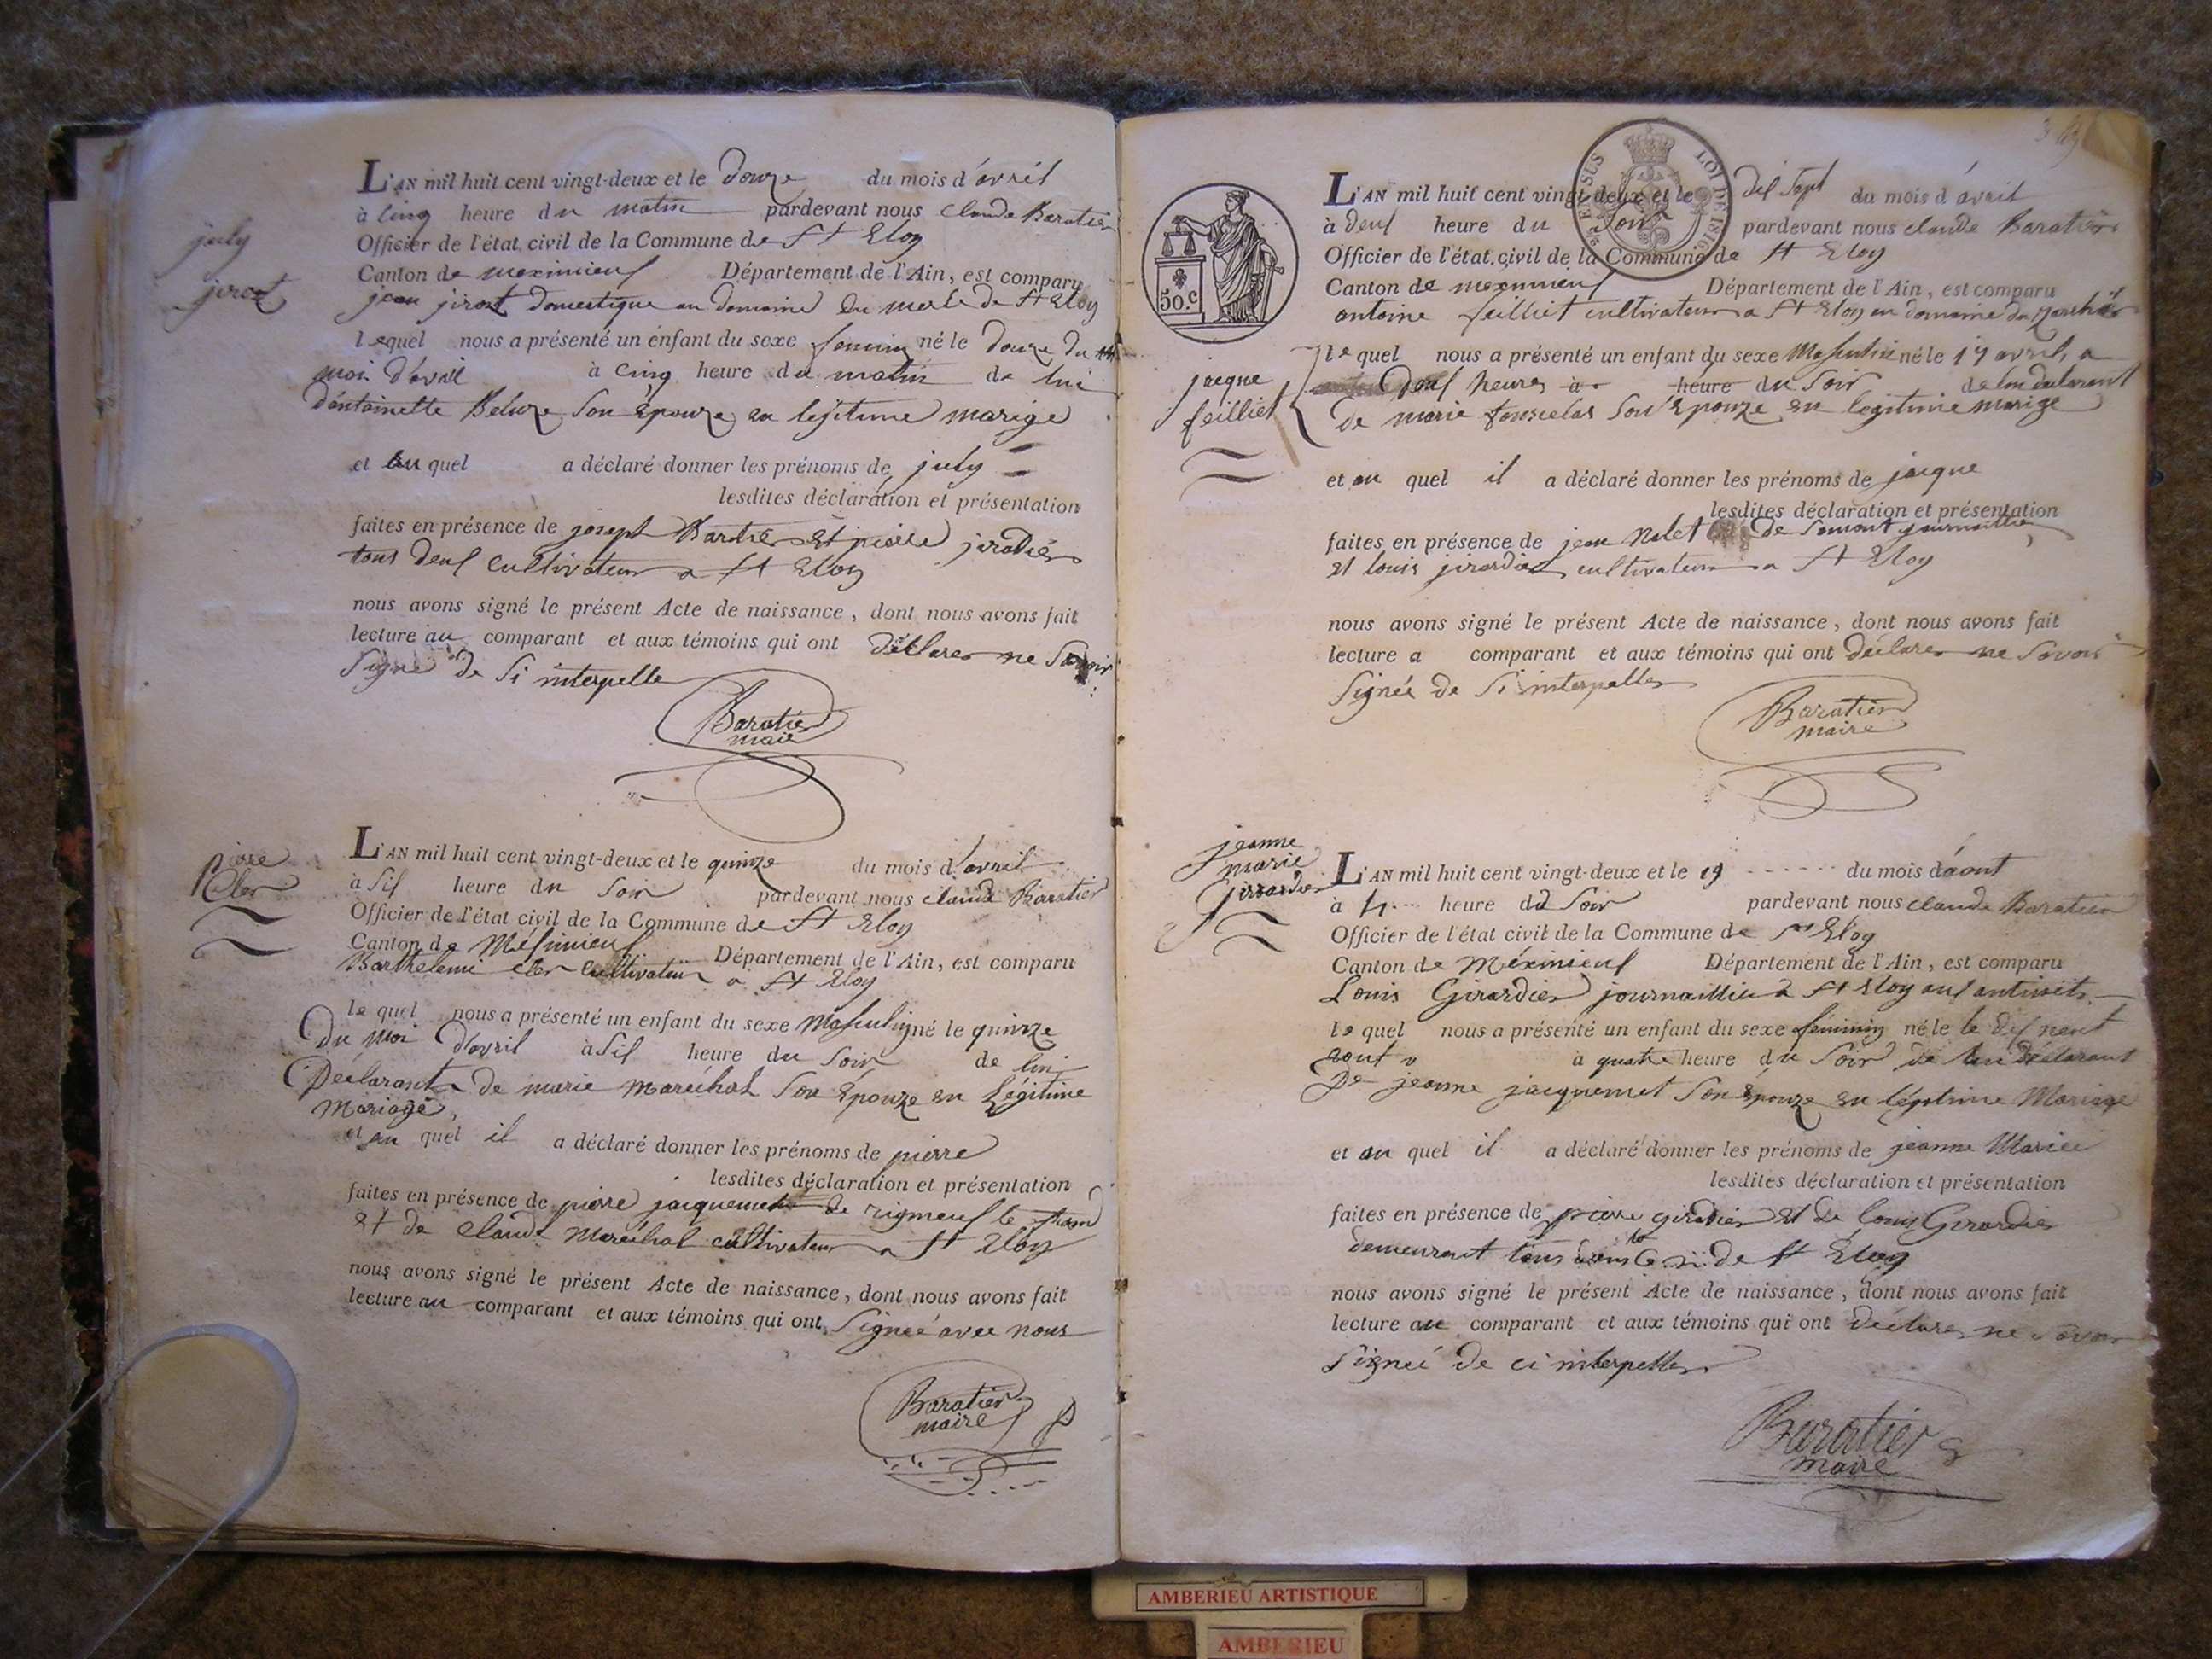 july
jirost
L'AN mil huit cent vingt-deux et le douze du mois d'avril
à cinq heure du matin pardevant nous claude Baratier
Officier de l'état civil de la Commune de St Eloy
Canton de meximieux Département de l'Ain, est comparu
jean jirost domestique au domaine du merle de St Eloy
lequel nous a présenté un enfant du sexe feminin né le douze du
moi d'avril à cinq heure du matin de lui
d'antoinette Beluze son épouze en lejitime marige
et au quel a déclaré donner les prénoms de july
lesdites déclaration et présentation
faites en présence de joseph et pierre jiradier
tous deux cultivateur a St Eloy
nous avons signé le présent Acte de naissance, dont nous avons fait
lecture au comparant et aux témoins qui ont déclarer ne savoir
signé de si interpelle
Baratier
maire
pierre
Cler
L'AN mil huit cent vingt-deux et le quinze du mois d'avril
à six heure du soir pardevant nous claude Baratier
Officier de l'état civil de la Commune de St Eloy
Canton de Meximieux Département de l'Ain, est comparu
Barthelemi cler cultivateur a St Eloy
le quel nous a présenté un enfant du sexe masculin né le quinze
Du moi d'avril à six heure du soir de lui
Déclarant de marie maréchal son épouze en légitime
mariage,
et au quel il a déclaré donner les prénoms de pierre
lesdites déclaration et présentation
faites en présence de pierre jacquemet de rigneux le franc
et de claude maréchal cultivateur a St Eloy
nous avons signé le présent Acte de naissance, dont nous avons fait
lecture au comparant et aux témoins qui ont signeé avec nous
Baratier
maire
EN SUS
LOI DE 1816
50.c
L'AN mil huit cent vingt-deux et le dix sept du mois d'avril
à deux heure du soir pardevant nous claude Baratier
Officier de l'état civil de la Commune de St Eloy
Canton de meximieux Département de l'Ain, est comparu
antoine feilliet cultivateur a St Eloy au domaine du
jacque
feilliet
le quel nous a présenté un enfant du sexe masculin né le 17 avril, a
deux heures à heure du soir de lui déclarant
de marie son épouze en legitime marige
et au quel il a déclaré donner les prénoms de jacque
lesdites déclaration et présentation
faites en présence de jean de journaillier
et louis jirardier cultivateur a St Eloy
nous avons signé le présent Acte de naissance, dont nous avons fait
lecture a comparant et aux témoins qui ont déclarer ne savoir
signée de si interpeller
Baratier
maire
jeanne
marie
Girardier
L'AN mil huit cent vingt-deux et le 19 du mois d'aout
à 4 heure du soir pardevant nous claude Baratier
Officier de l'état civil de la Commune de St Eloy
Canton de Méximieux Département de l'Ain, est comparu
Louis Girardier journaillier a St Eloy
le quel nous a présenté un enfant du sexe féminin né le le dix neuf
aout à quatre heure du soir de lui déclarant
De jeanne jacquemet son épouze en légitime Mariage
et au quel il a déclaré donner les prénoms de jeanne Mariee
lesdites déclaration et présentation
faites en présence de pierre giradier et de louis Girardier
demeurant tous St Eloy
nous avons signé le présent Acte de naissance, dont nous avons fait
lecture au comparant et aux témoins qui ont déclarer ne savoir
signeé de ci interpeller
Baratier
maire
AMBERIEU ARTISTIQUE
AMBERIEU